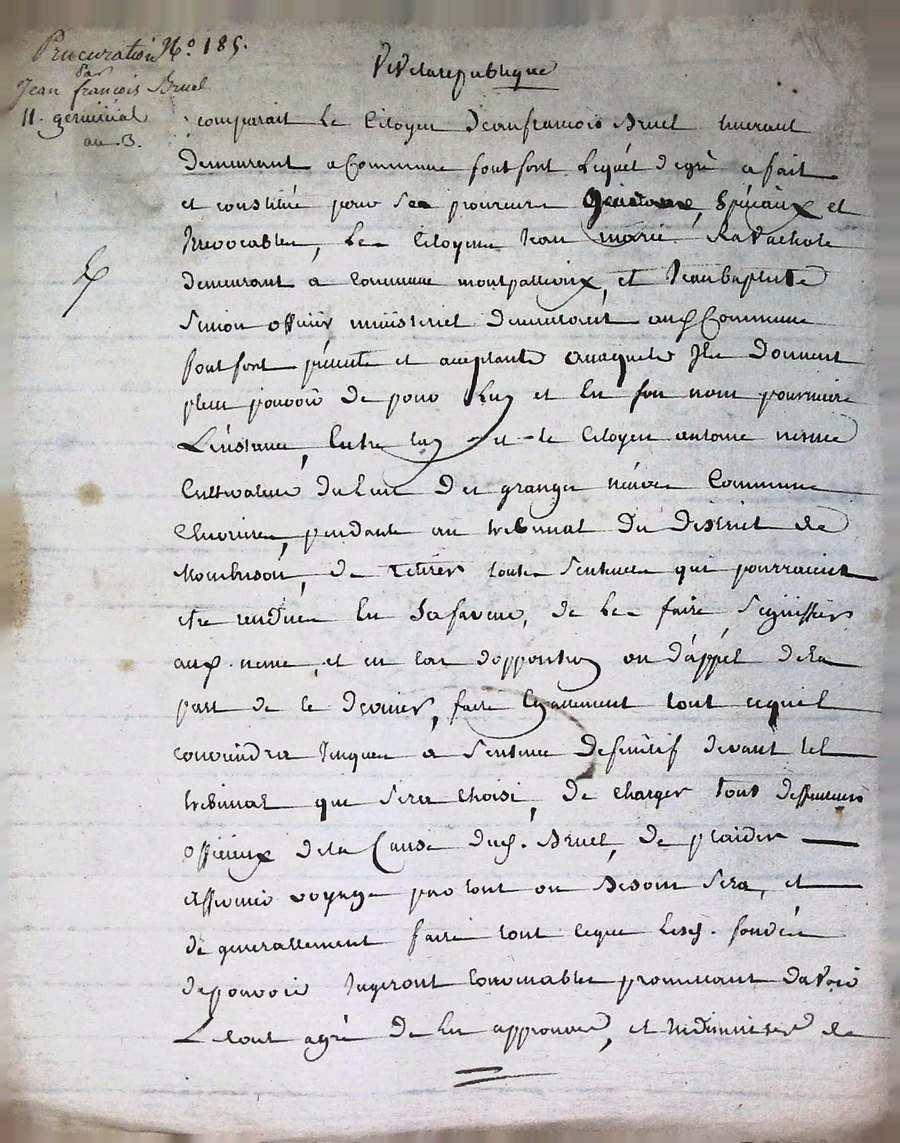 Procuration N.º 185.
par
Jean françois Bruel
11 germinal
an 3.
Vive la republique
comparait Le Citoyen Jeanfrancois Bruel
demeurant a Commune fontfort Lequél degrè a fait
et constitué pour ses procureurs Généraux, Spéciaux et
Irrevocables, Les Citoyens Jean marie Ravachole
demeurant a Commune montpalleroix, et Jeanbaptiste
Simon officier ministeriel demeurant aud Commune
fontfort présents et acceptants auxquels Ils donnent
plein pouvoir de pour Luy et En son nom poursuivre
L'instance, Entre luy et le Citoyen antoine
Cultivateur du Lieu des granges Commune
pendante au tribunal du District de
Montbrison, de retirer toutes Sentences qui pourraient
etre renduës En Safaveur, de Les faire Signiffier
aud. et en Cas dopposition ou d'áppél dela
part de cé dernier, faire Egalement tout cequil
conviendra Jusques a Sentence definitif devant tel
tribunal qui Sera choisi, de charger tous deffenseurs
officieux dela Cause dud. Bruel, de plaider
affirmer voyage partout ou Besoin Sera, et
de generallement faire tout ceque Lesd. fondés
depouvoir Jugeront Convenables promettant davoir
Le tout agrè de Les approuver, et indemniser de